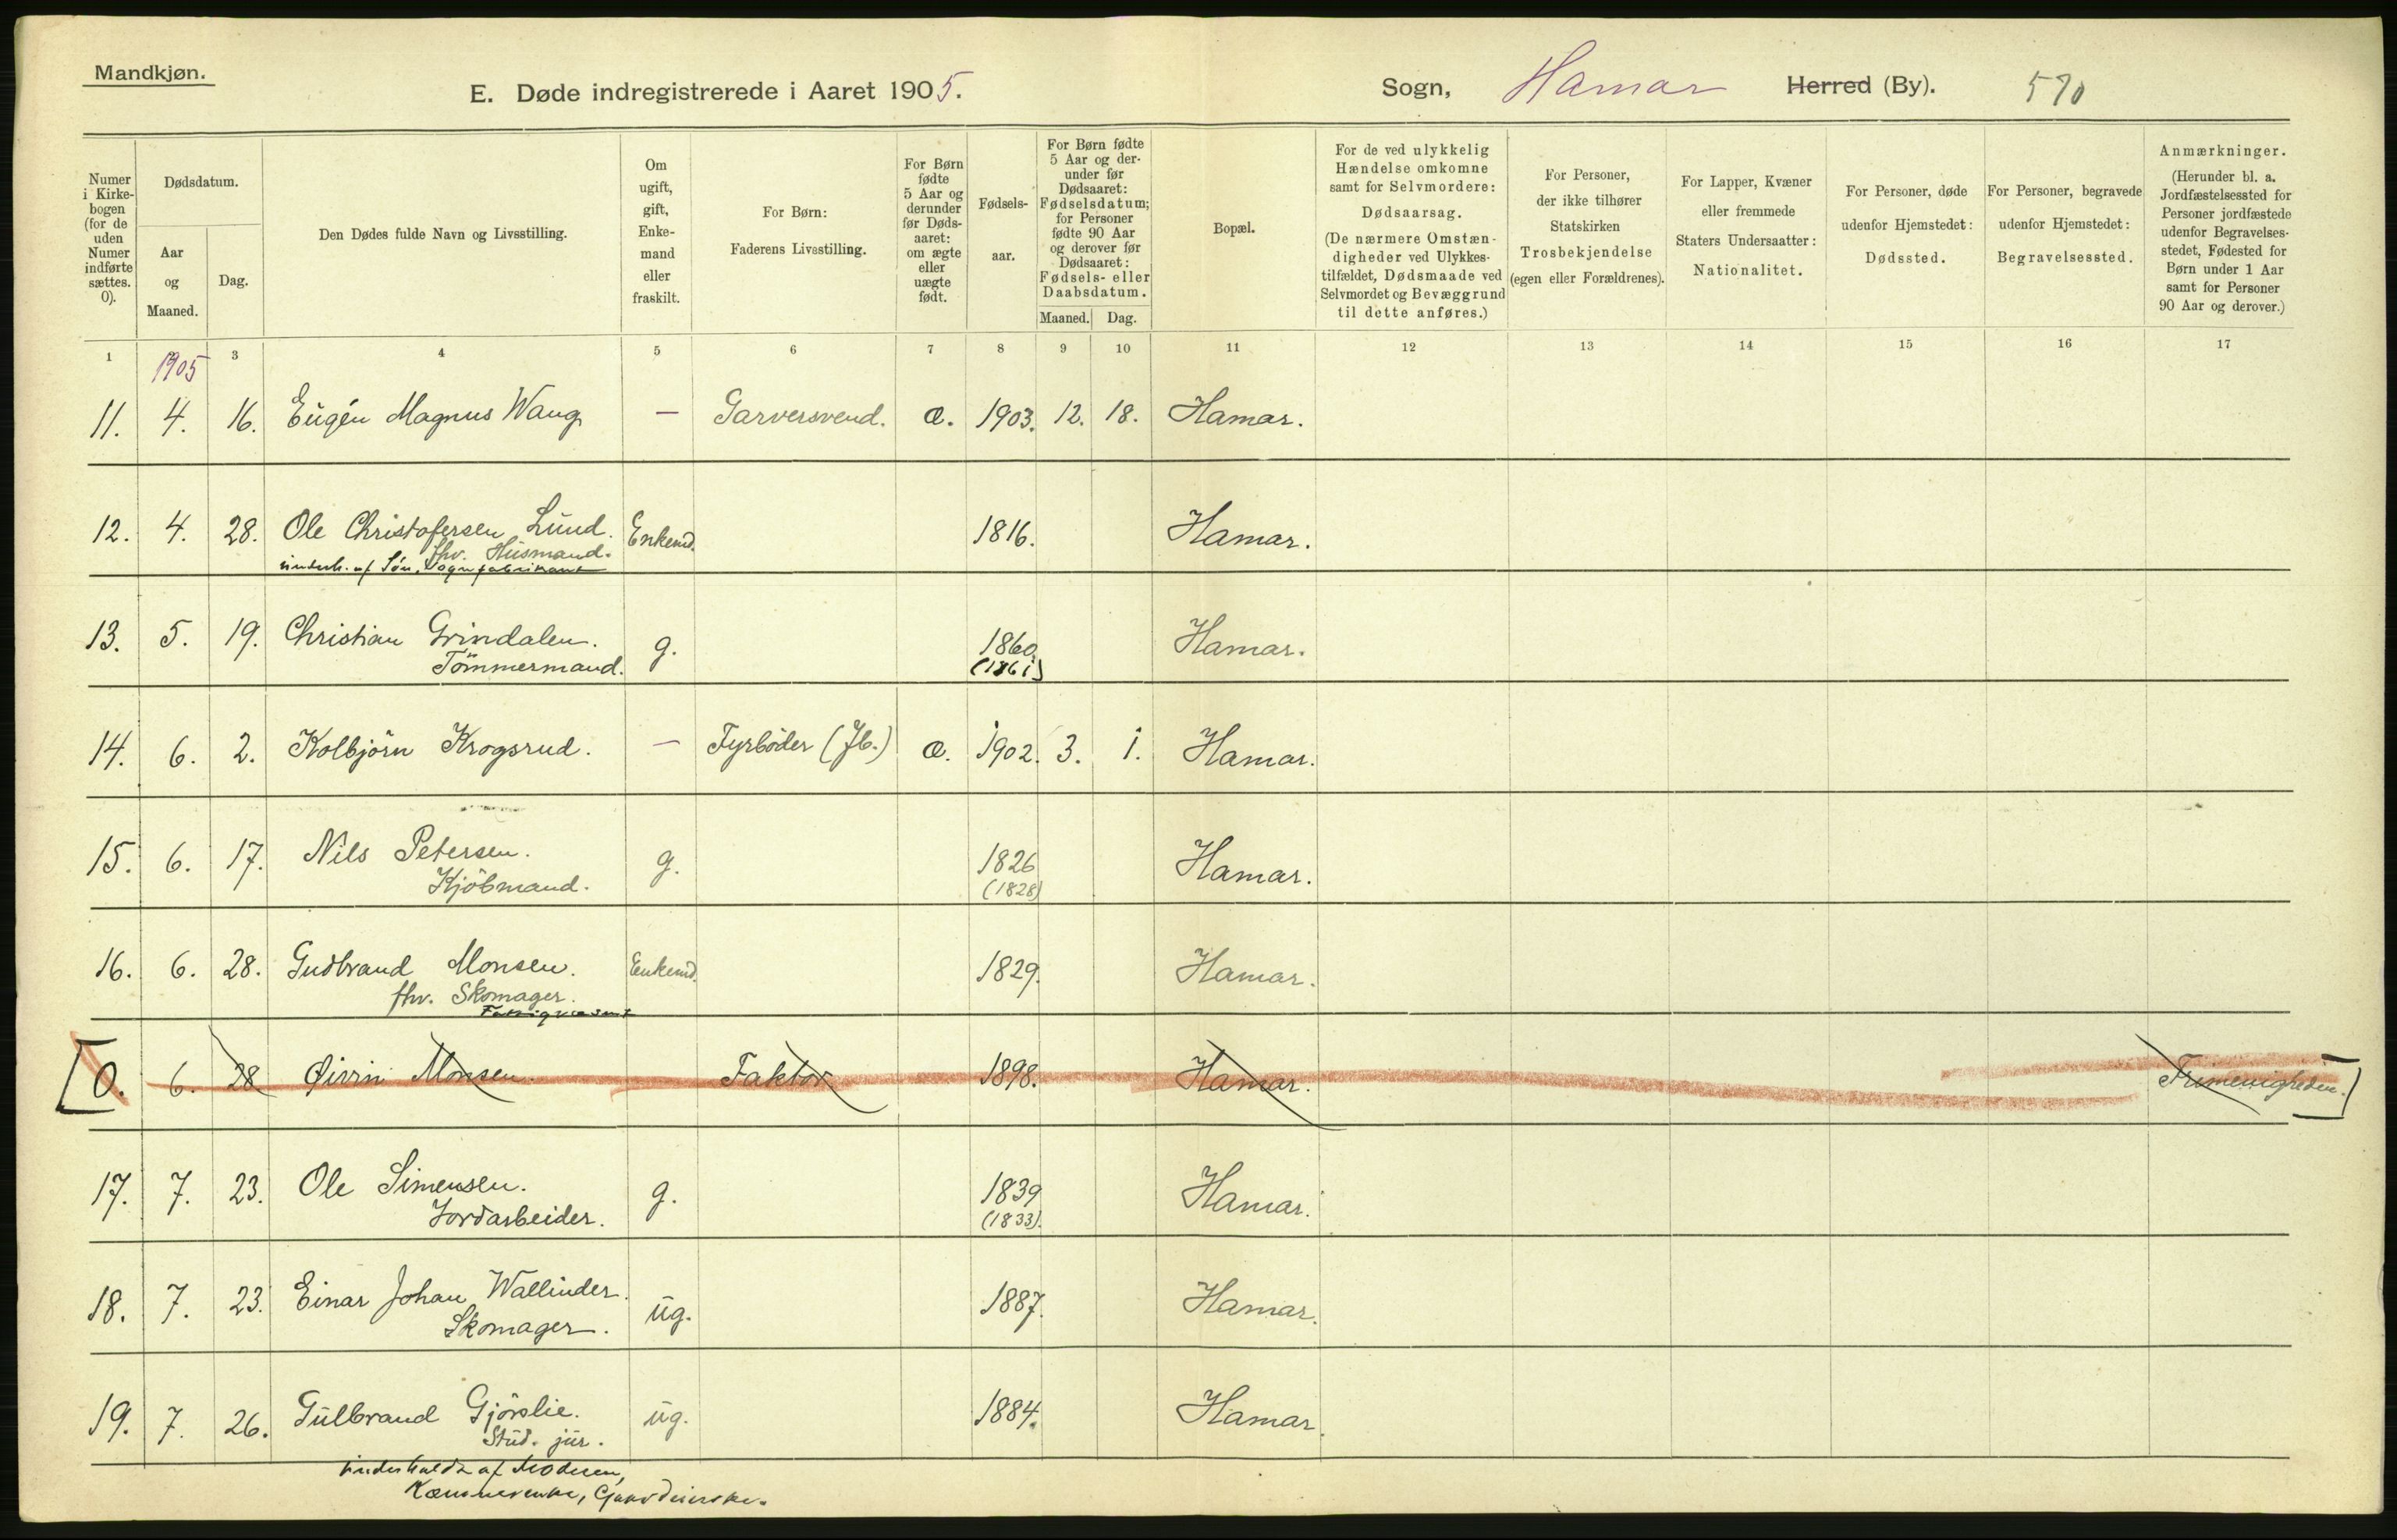 Mandkjøn.
E. Døde indregistrerede i Aaret 1905. Sogn, Hamar Herred (By). 570
Numer i Kirkebogen (for de uden Numer indførte sættes. 0).
Dødsdatum.
Aar og Maaned.
Dag.
Den Dødes fulde Navn og Livsstilling.
Om ugift, gift, Enkemand eller fraskilt.
For Børn:
Faderens Livsstilling.
For Børn fødte 5 Aar og derunder før Dødsaaret: om ægte eller uægte født.
Fødselsaar.
For Børn fødte 5 Aar og derunder før Dødsaaret: Fødselsdatum; for Personer fødte 90 Aar og derover før Dødsaaret: Fødsels- eller Daabsdatum.
Maaned. Dag.
Bopæl.
For de ved ulykkelig Hændelse omkomne samt for Selvmordere: Dødsaarsag. (De nærmere Omstændigheder ved Ulykkestilfældet, Dødsmaade ved Selvmordet og Bevæggrund til dette anføres.)
For Personer, der ikke tilhører Statskirken Trosbekjendelse (egen eller Forældrenes).
For Lapper, Kvæner eller fremmede Staters Undersaatter: Nationalitet.
For Personer, døde udenfor Hjemstedet: Dødssted.
For Personer, begravede udenfor Hjemstedet: Begravelsessted.
Anmærkninger. (Herunder bl. a. Jordfæstelsessted for Personer jordfæstede udenfor Begravelsesstedet, Fødested for Børn under 1 Aar samt for Personer 90 Aar og derover.)
1 3 4 5 6 7 8 9 10 11 12 13 14 15 16 17
1905
11. 4. 16. Eugén Magnus Wang — Garversvend. æ. 1903. 12. 18. Hamar.
12. 4. 28. Ole Christofersen Lund. Enkemd. 1816. Hamar.
fhv. Husmand.
underh. af Søn, Vognfabrikant
13. 5. 19. Christian Grindalen. g. 1860. Hamar.
Tömmermand. (1861)
14. 6. 2. Kolbjörn Krogsrud. — Fyrböder (Jb.) æ. 1902. 3. 1. Hamar.
15. 6. 17. Nils Petersen. g. 1826 Hamar.
Kjöbmand. (1828)
16. 6. 28. Gudbrand Monsen. Enkemd. 1829. Hamar.
fhv. Skomager.
Fattigvæsent
[0. 6. 28 Øivin Monsen. Faktor 1898. Hamar. Frimenigheden.]
17. 7. 23. Ole Simensen. g. 1839 Hamar.
Jordarbeider. (1833).
18. 7. 23. Einar Johan Wallinder. ug. 1887. Hamar.
Skomager.
19. 7. 26. Gulbrand Gjörslie. ug. 1884. Hamar.
Stud. jur.
underholdt af Moderen,